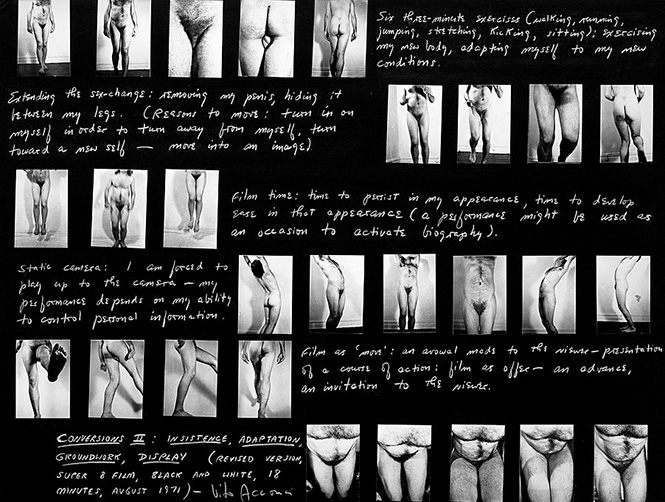 Six three-minute exercises (walking, running,
jumping, stretching, kicking, sitting): exercising
my new body, adapting myself to my new
conditions.
Extending the sex-change: removing my penis, hiding it
between my legs. (Reasons to move: turn in on
myself in order to turn away from myself, turn
toward a new self — move into an image).
Film time: time to persist in my appearance, time to develop
ease in that appearance (a performance might be used as
an occasion to activate biography).
Static camera: I am forced to
play up to the camera — my
performance depends on my ability
to control personal information.
Film as 'move': an avowal made to the viewer — presentation
of a course of action: film as offer — an advance,
an invitation to the viewer.
CONVERSIONS II: INSISTENCE, ADAPTATION,
GROUNDWORK, DISPLAY (REVISED VERSION,
SUPER 8 FILM, BLACK AND WHITE, 18
MINUTES, AUGUST 1971) — Vito Acconci